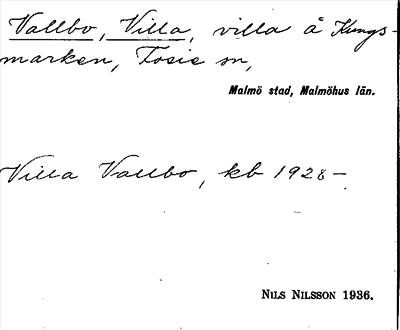 Vallbo, Villa, villa å Kungs-
marken, Fosie sn,
Malmö stad, Malmöhus län.
Villa Vallbo, kb 1928–
NILS NILSSON 1936.